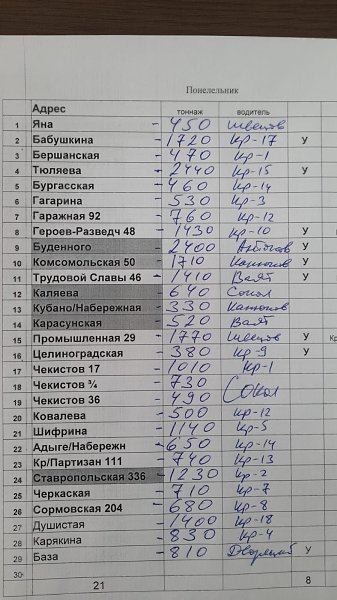 Понелельник
Адрес тоннаж водитель
1 Яна - 450 Швецов
2 Бабушкина - 1720 Кр-17 У
3 Бершанская - 470 Кр-1
4 Тюляева - 2440 Кр-15 У
5 Бургасская - 460 Кр-14
6 Гагарина - 530 Кр-3
7 Гаражная 92 - 760 Кр-12
8 Героев-Разведч 48 - 1430 Кр-10 У
9 Буденного - 2400 У
10 Комсомольская 50 - 1710 У
11 Трудовой Славы 46 - 1410 Ваят У
12 Каляева - 640 Сокол
13 Кубано/Набережная - 330
14 Карасунская - 520 Ваят
15 Промышленная 29 - 1770 Швецов У Кр
16 Целиноградская - 380 Кр-9 У
17 Чекистов 17 - 1010 Кр-1
18 Чекистов ¾ - 730
19 Чекистов 36 - 490 Сокол
20 Ковалева - 500 Кр-12
21 Шифрина - 1140 Кр-5
22 Адыге/Набережн - 650 Кр-14
23 Кр/Партизан 111 - 740 Кр-13
24 Ставропольская 336 - 1230 Кр-2
25 Черкаская - 710 Кр-7
26 Сормовская 204 - 680 Кр-8
27 Душистая - 1400 Кр-18
28 Карякина - 830 Кр-4
29 База - 810 У
30
21 8